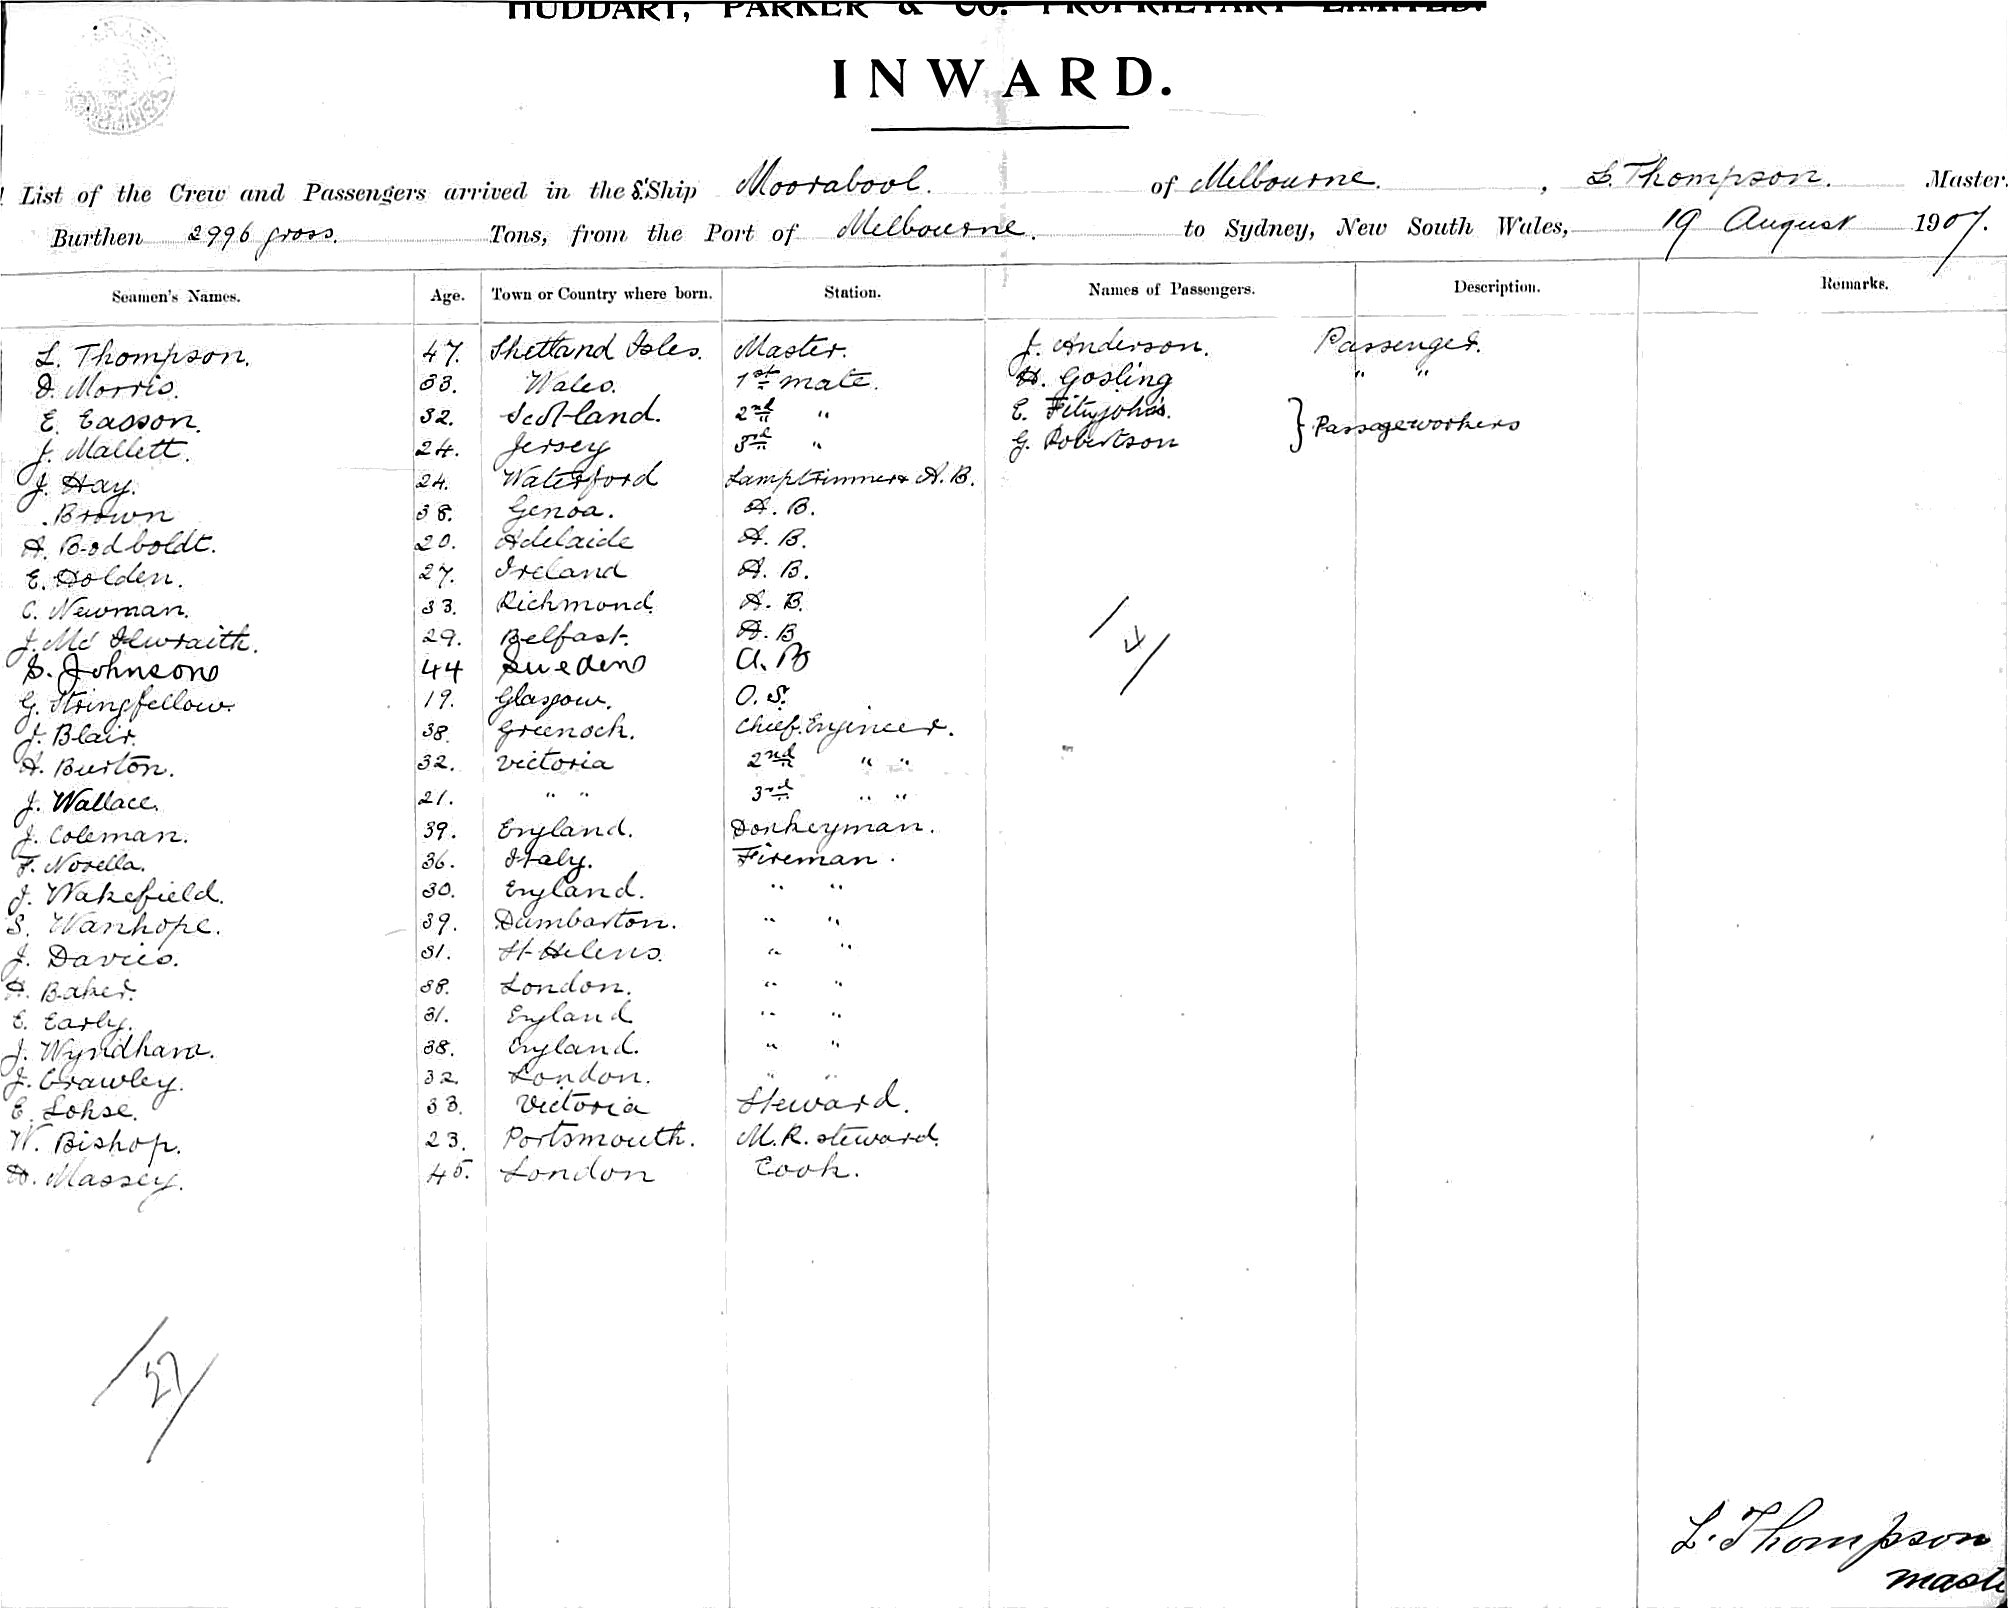 HUDDART, PARKER & CO. PROPRIETARY LIMITED.
INWARD.
List of the Crew and Passengers arrived in the S.Ship Moorabool. of Melbourne. , L. Thompson. Master.
Burthen 2996 gross. Tons, from the Port of Melbourne. to Sydney, New South Wales, 19 August 1907.
Seamen's Names. Age. Town or Country where born. Station. Names of Passengers. Description. Remarks.
L. Thompson. 47. Shetland Isles. Master. J. Anderson. Passenger.
D. Morris. 33. Wales. 1st mate. H. Gosling " "
E. Easson. 32. Scotland. 2nd " E. Fitzjohns. } Passageworkers
J. Mallett. 24. Jersey 3rd " G. Robertson
J. Hay. 24. Waterford Lamptrimmer & A.B.
Brown 38. Genoa. A. B.
A. Bodboldt. 20. Adelaide A. B.
E. Holden. 27. Ireland A. B.
C. Newman. 33. Richmond. A. B.
J. Mc Ilwraith. 29. Belfast. A. B
S. Johnson 44 Sweden A. B
G. Stringfellow. 19. Glasgow. O. S.
J. Blair. 38. Greenock. Chief. Engineer.
A. Burton. 32. Victoria 2nd " "
J. Wallace. 21. " " 3rd " "
J. Coleman. 39. England. Donkeyman.
F. Novella. 36. Italy. Fireman.
J. Wakefield. 30. England. " "
S. Wanhope. 39. Dumbarton. " "
J. Davies. 31. St Helens. " "
H. Baker. 38. London. " "
E. Early. 31. England " "
J. Wyndham. 38. England. " "
J. Crawley. 32. London. " "
E. Lohse. 33. Victoria Steward.
W. Bishop. 23. Portsmouth. M.R. steward.
D. Massey. 45. London Cook.
/4/
/27/
L. Thompson
maste